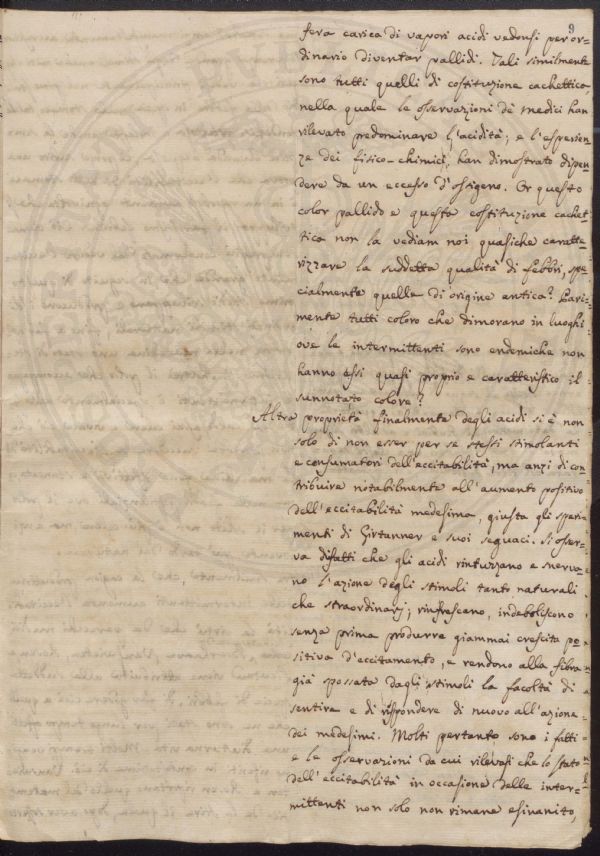 9
fera carica di vapori acidi vedonsi per or=
dinario diventar pallidi. Tali similmente
sono tutti quelli di costituzione cachettica,
nella quale le osservazioni de' medici han
rilevato predominare l'acidità; e l'esperien=
ze dei fisico-chimici, han dimostrato dipen=
dere da un eccesso d'ossigeno. Or questo
color pallido e questa costituzione cachet=
tica non la vediam noi quasiche caratte=
rizzare la suddetta qualità di febbri, spe=
cialmente quelle di origine antica? Pari=
mente tutti coloro che dimorano in luoghi
ove le intermittenti sono endemiche non
hanno essi quasi proprio e caratteristico il
sunnotato colore?
Altra proprietà finalmente degli acidi si è non
solo di non esser per se stessi stimolanti
e consumatori dell'eccitabilità, ma anzi di con=
tribuire notabilmente all'aumento positivo
dell'eccitabilità medesima, giusta gli speri=
menti di Girtanner e suoi seguaci. Si osser=
va difatti che gli acidi rintuzzano e snerva=
no l'azione degli stimoli tanto naturali
che straordinarj; rinfrescano, indeboliscono
senza prima produrre giammai crescita po=
sitiva d'eccitamento, e rendono alla fibra
già spossata dagli stimoli la facoltà di
sentire e di rispondere di nuovo all'azione
dei medesimi. Molti pertanto sono i fatti
e le osservazioni da cui rilevasi che lo stato
dell'eccitabilità in occasione delle inter=
mittenti non solo non rimane esinanito,